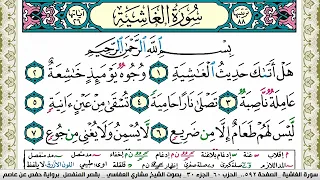 سورة الغاشية
ترتيبها ٨٨
آياتها ٢٦
بِسْمِ اللَّهِ الرَّحْمَٰنِ الرَّحِيمِ
هَلْ أَتَىٰكَ حَدِيثُ الْغَٰشِيَةِ ١ وُجُوهٌ يَوْمَئِذٍ خَٰشِعَةٌ ٢
عَامِلَةٌ نَّاصِبَةٌ ٣ تَصْلَىٰ نَارًا حَامِيَةً ٤ تُسْقَىٰ مِنْ عَيْنٍ ءَانِيَةٍ ٥
لَّيْسَ لَهُمْ طَعَامٌ إِلَّا مِن ضَرِيعٍ ٦ لَّا يُسْمِنُ وَلَا يُغْنِي مِن جُوعٍ ٧
سورة الغاشية الصفحة ٥٩٢ الجزء ٣٠ بصوت الشيخ مشاري العفاسي بقصر المنفصل برواية حفص عن عاصم